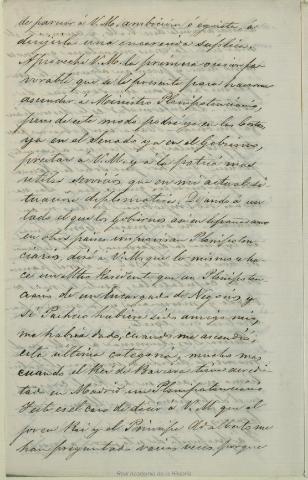 de parecer á V.M. ambicioso ó egoista, á
dirigirle una encarecida súplica.
Aproveche V.M. la primera ocasion fa-
vorable que se le presente para hacerme
ascender á Ministro Plenipotenciario,
pues de este modo podré ya en las Cortes,
ya en el Senado y ya en el Gobierno,
prestar á V.M. y á la patria mas
utiles servicios que en mi actual si-
tuacion diplomática. Dejando á un
lado el que los Gobiernos asi en España como
en otros paises improvisan Plenipoten-
ciarios, diré á V.M. que lo mismo se ha-
ce un Mtro Residente que un Plenipoten-
ciario de un Encargado de Negocios y
si Pacheco hubiera sido amigo mio,
me habria dado, cuando me ascendió
esta ultima categoria, mucho mas
cuando el Rei de Baviera tiene acredi-
tado en Madrid un Plenipotenciario
Este es el caso de decir á V.M. que el
joven Rei y el Principe Adalberto me
han preguntado varias veces, porque
Real Academia de la Historia